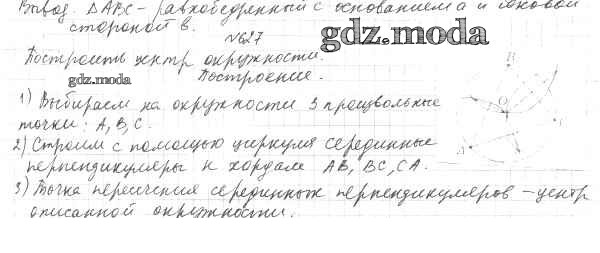 Вывод. ΔABC – равнобедренный с основанием a и боковой
стороной в.
N627
gdz.moda
Построить центр окружности.
gdz.moda
Построение.
1) Выбираем на окружности 3 произвольные
точки: A, B, C.
2) Строим с помощью циркуля серединные
перпендикуляры к хордам AB, BC, CA.
3) Точка пересечения серединных перпендикуляров – центр
описанной окружности.
O